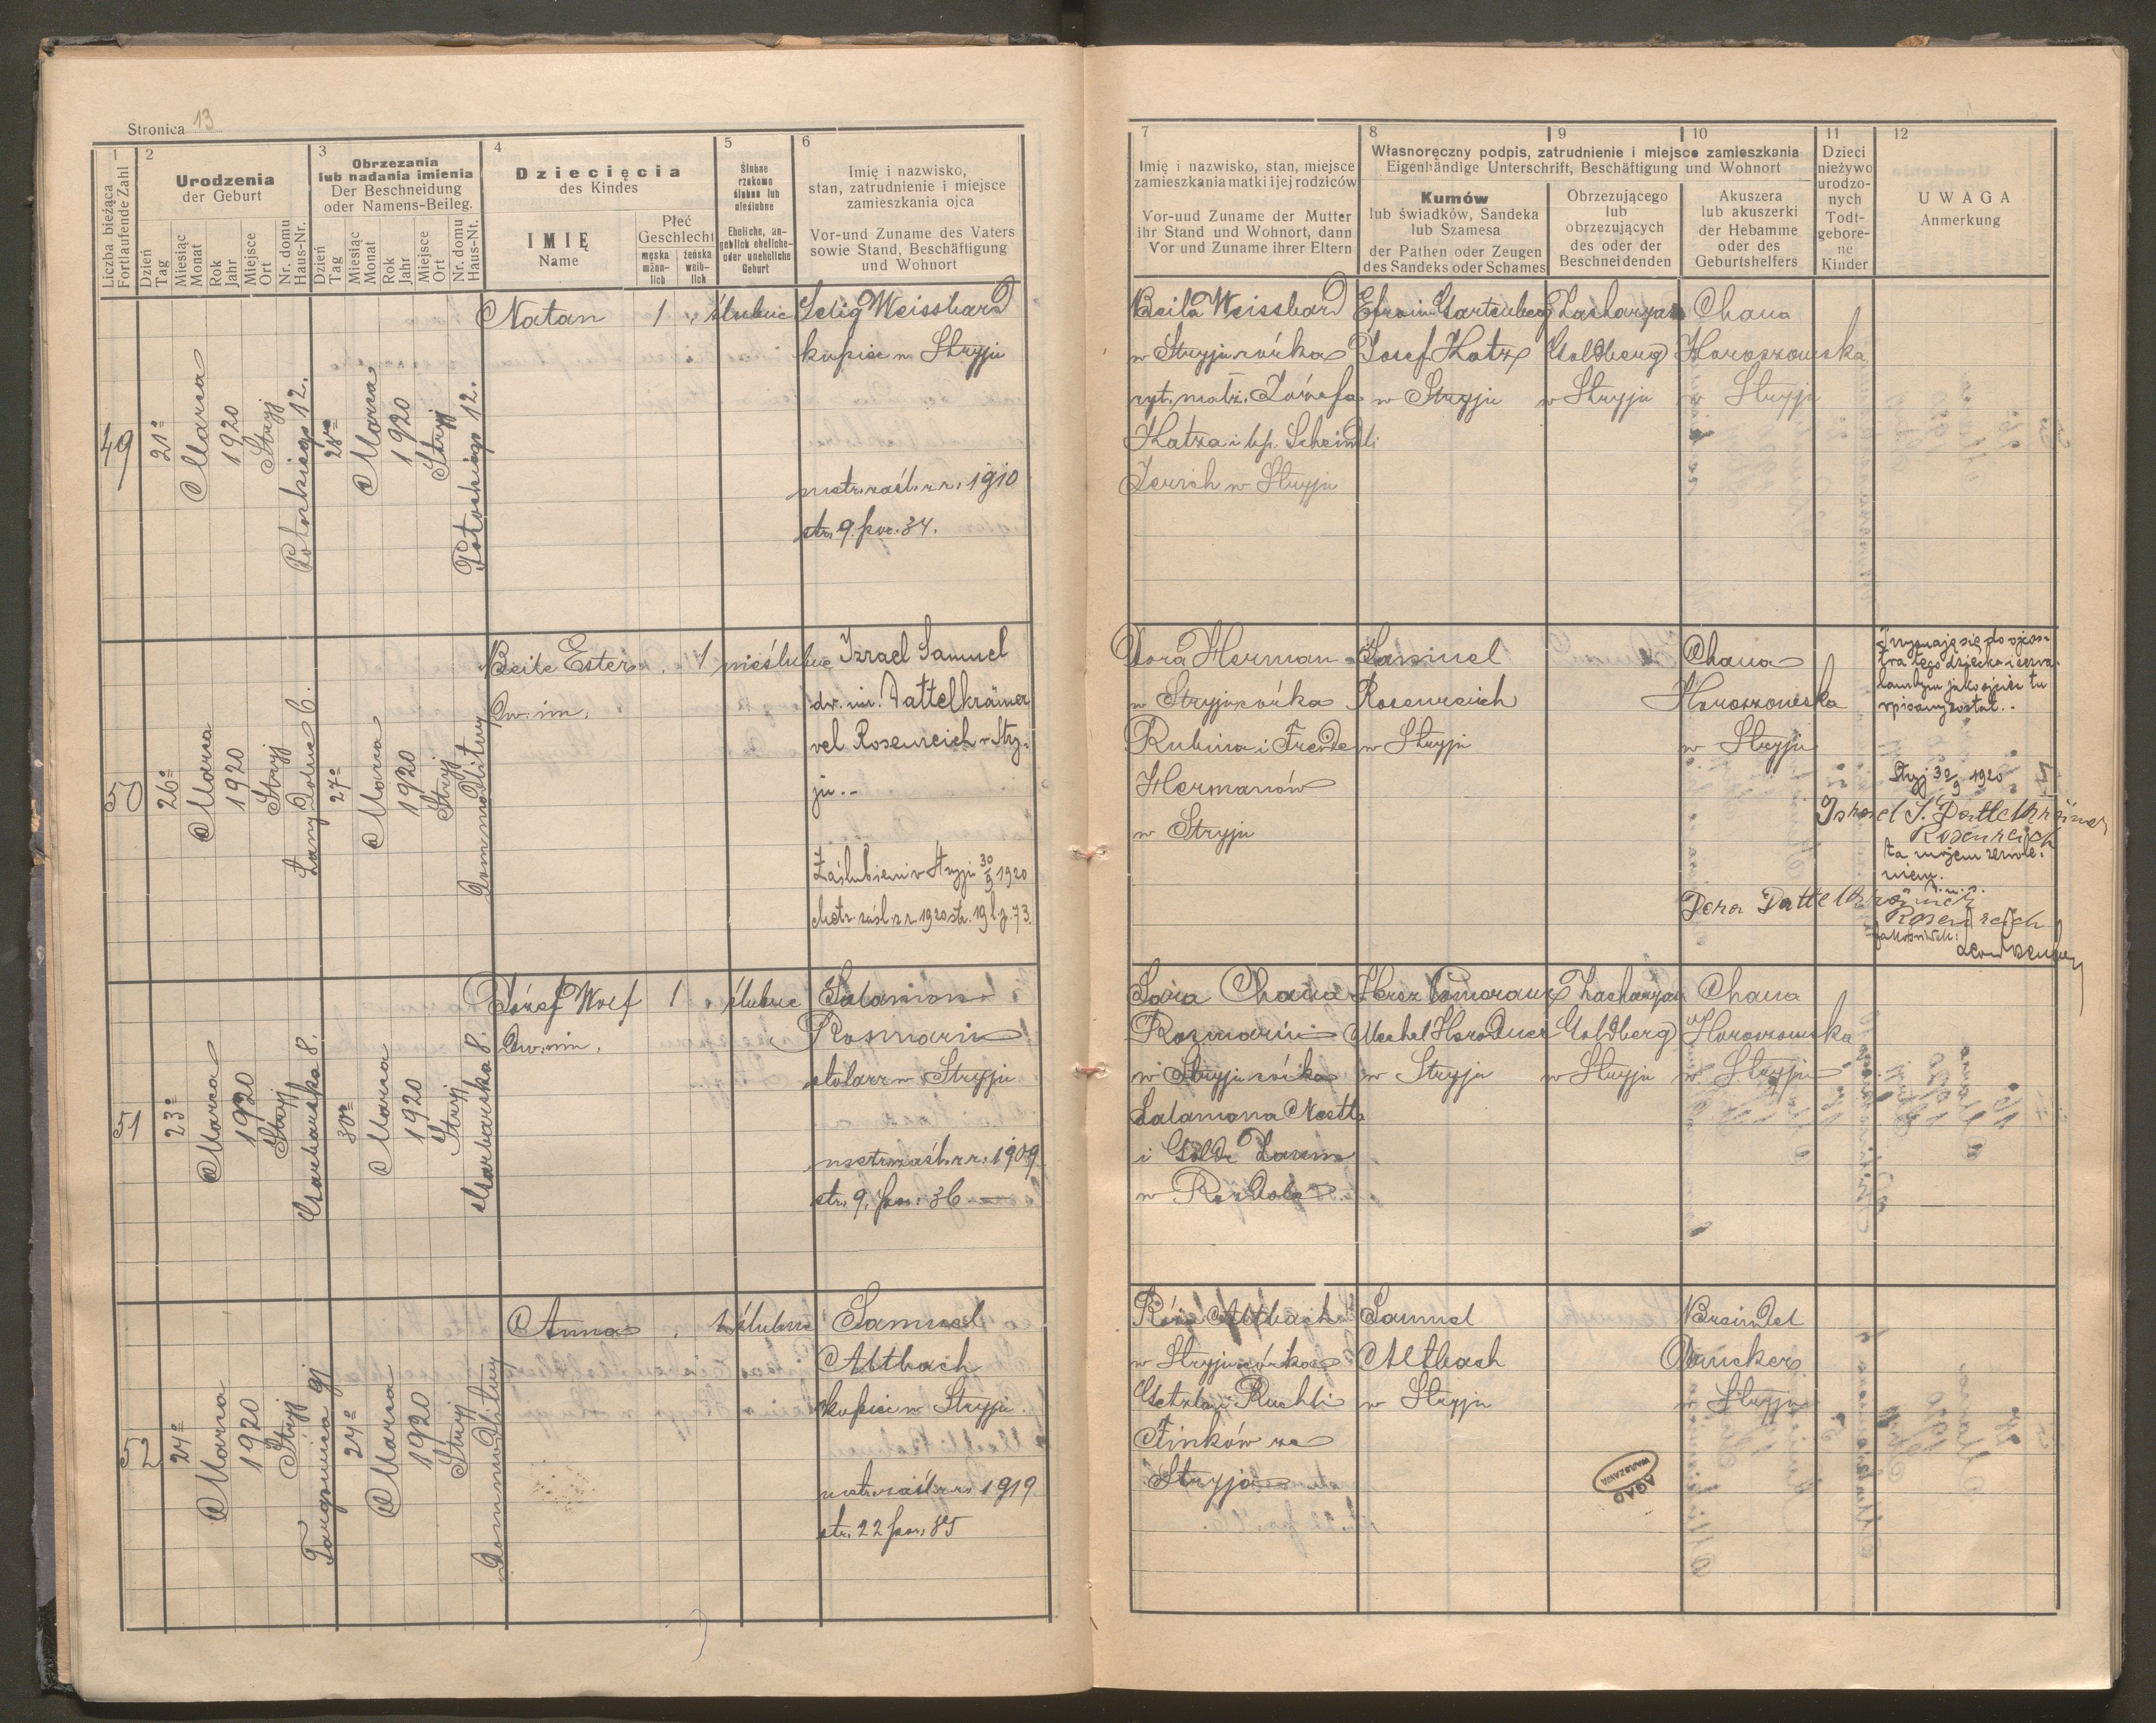 Stronica 13
1
Liczba bieżąca
Fortlaufende Zahl
2
Urodzenia
der Geburt
Dzień
Tag
Miesiąc
Monat
Rok
Jahr
Miejsce
Ort
Nr. domu
Haus-Nr.
3
Obrzezania
lub nadania imienia
Der Beschneidung
oder Namens-Beileg.
Dzień
Tag
Miesiąc
Monat
Rok
Jahr
Miejsce
Ort
Nr. domu
Haus-Nr.
4
Dziecięcia
des Kindes
IMIĘ
Name
Płeć
Geschlecht
męska
männ-
lich
żeńska
weib-
lich
5
Ślubne
rzekomo
ślubne lub
nieślubne
Eheliche, an-
geblich eheliche-
oder uneheliche
Geburt
6
Imię i nazwisko,
stan, zatrudnienie i miejsce
zamieszkania ojca
Vor-und Zuname des Vaters
sowie Stand, Beschäftigung
und Wohnort
7
Imię i nazwisko, stan, miejsce
zamieszkania matki i jej rodziców
Vor-uud Zuname der Mutter
ihr Stand und Wohnort, dann
Vor und Zuname ihrer Eltern
8
9
10
Własnoręczny podpis, zatrudnienie i miejsce zamieszkania
Eigenhändige Unterschrift, Beschäftigung und Wohnort
Kumów
lub świadków, Sandeka
lub Szamesa
der Pathen oder Zeugen
des Sandeks oder Schames
Obrzezującego
lub
obrzezujących
des oder der
Beschneidenden
Akuszera
lub akuszerki
der Hebamme
oder des
Geburtshelfers
11
Dzieci
nieżywo
urodzo-
nych
Todt-
gebore-
ne
Kinder
12
UWAGA
Anmerkung
49
21º
Marca
1920
Stryj
Potockiego 12.
28º
Marca
1920
Stryj
Potockiego 12.
Natan
1
ślubne
Selig Weissbard
kupiec w Stryju
metr. zaśl. z r. 1910
str. 9 poz. 34.
Beila Weissbard
w Stryju córka
ryt. małż. Józefa
Katza i Scheindli
w Stryju
Efroim Gartenberg
Josef Katz
w Stryju
Zacharyas
Goldberg
w Stryju
Chana
Horoszowska
w Stryju
50
26º
Marca
1920
Stryj
Łany Dolne 6.
27º
Marca
1920
Stryj
w domu modlitwy
Beile Ester
dw. im.
1
nieślubne
Izrael Samuel
dw. im. Dattelkrämer
vel Rosenreich w Stry-
ju.-
Zaślubieni w Stryju 30/9 1920
Metr. zaśl. z r. 1920 str. 19 l.p. 73.
Dora Herman
w Stryju córka
Rubina i Freide
Hermanów
w Stryju
Samuel
Rosenreich
w Stryju
Chana
Horoszowska
w Stryju
Przyznaję się do ojcos-
twa tego dziecka i zezwa-
lam bym jako ojciec tu
wpisany został.-
Stryj 30/9 1920
Israel S. Dattelkrämer
Rosenreich
Za mojem zezwole-
niem.
Dora Dattelkrämer
Rosenreich
51
23º
Marca
1920
Stryj
Garbarska 8.
30º
Marca
1920
Stryj
Garbarska 8.
Józef Wolf
dw. im.
1
ślubne
Salamon
Rosmarin
stolarz w Stryju
metr. zaśl. z r. 1909
str. 9. poz. 36
Sara Chana
Rosmarin
w Stryju córka
Salamona
i
w Rozdole
Hersz Pomeranz
Mechel Horodner
w Stryju
Zacharyas
Goldberg
w Stryju
Chana
Horoszowska
w Stryju
52
24º
Marca
1920
Stryj
Targowica 9j
24º
Marca
1920
Stryj
w domu modlitwy
Anna
1
ślubne
Samuel
Altbach
kupiec w Stryju
metr. zaśl. z r. 1919
str. 22 poz. 85
Róża Altbach
w Stryju córka
Getzla i Ruchli
Finków ze
Stryja
Samuel
Altbach
w Stryju
Breindel
Drucker
w Stryju
AGAD
WARSZAWA